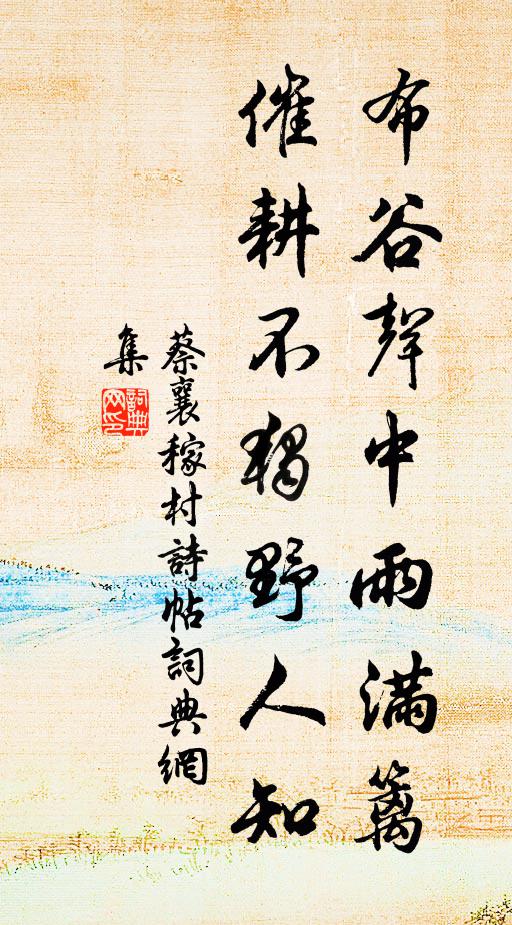 布谷聲中雨滿篱
催耕不獨野人知
蔡襄稼村詩帖詞典網
集
詞典
网印